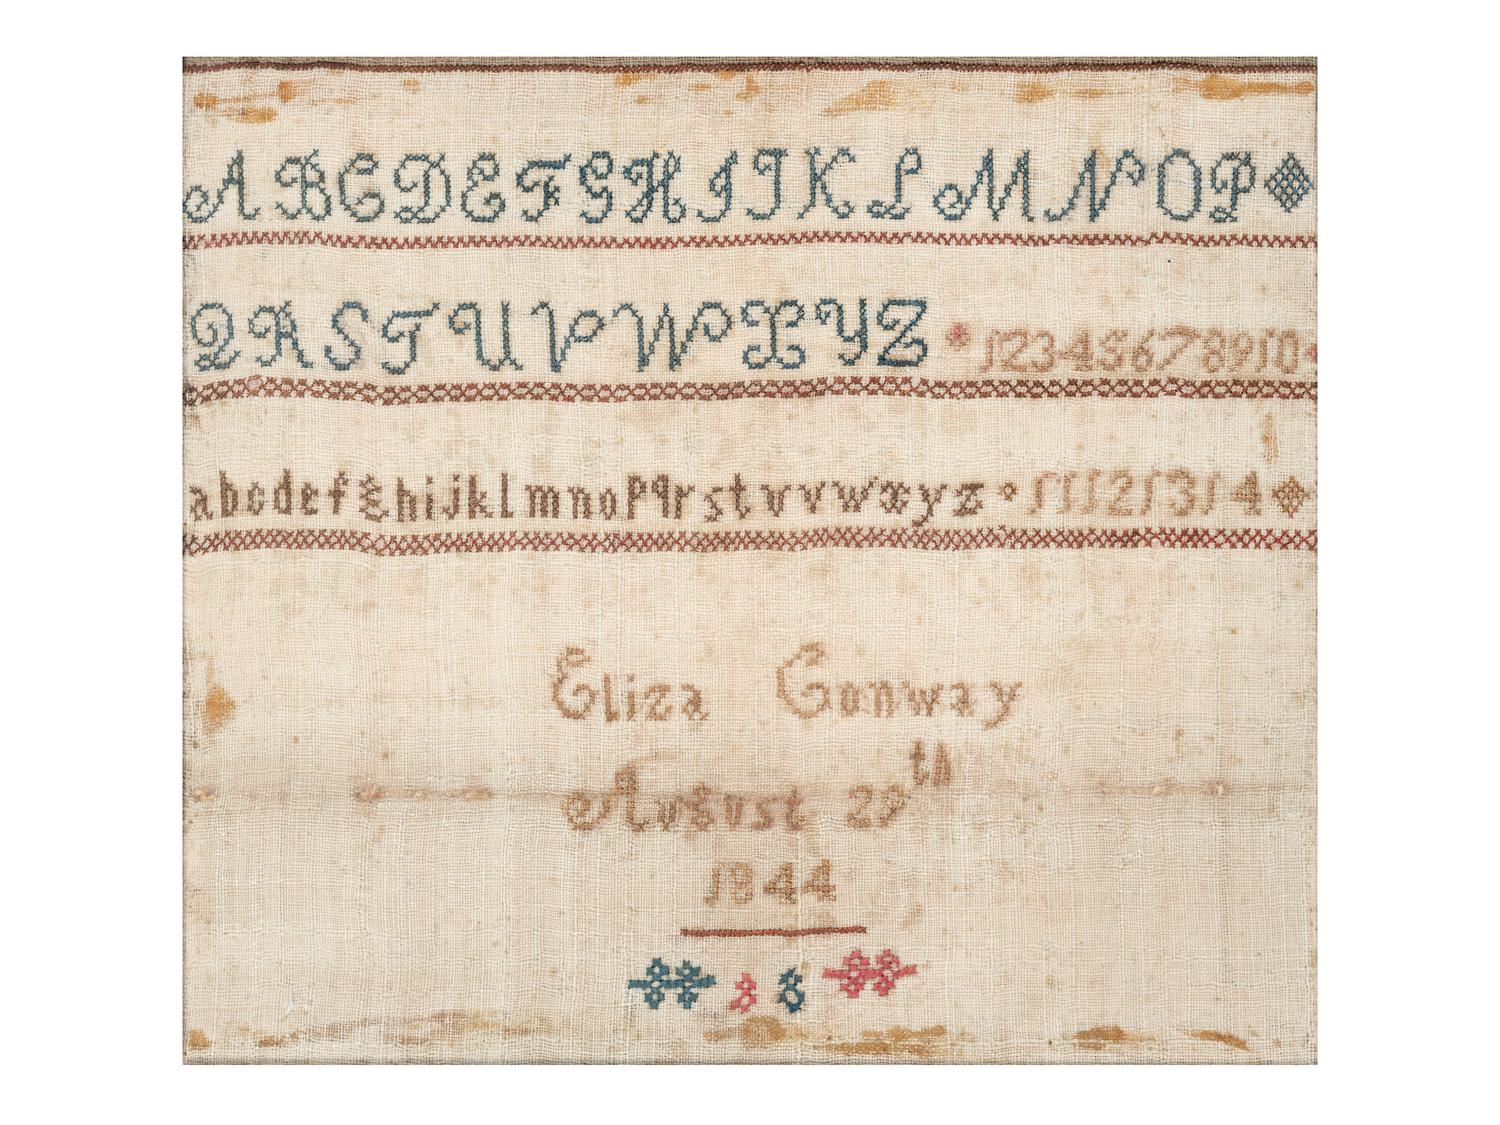 A B C D E F G H I J K L M N O P
Q R S T U V W X Y Z 1 2 3 4 5 6 7 8 9 10
a b c d e f g h i j k l m n o p q r s t u v w x y z 11 12 13 14
Eliza Conway
August 29th
1844